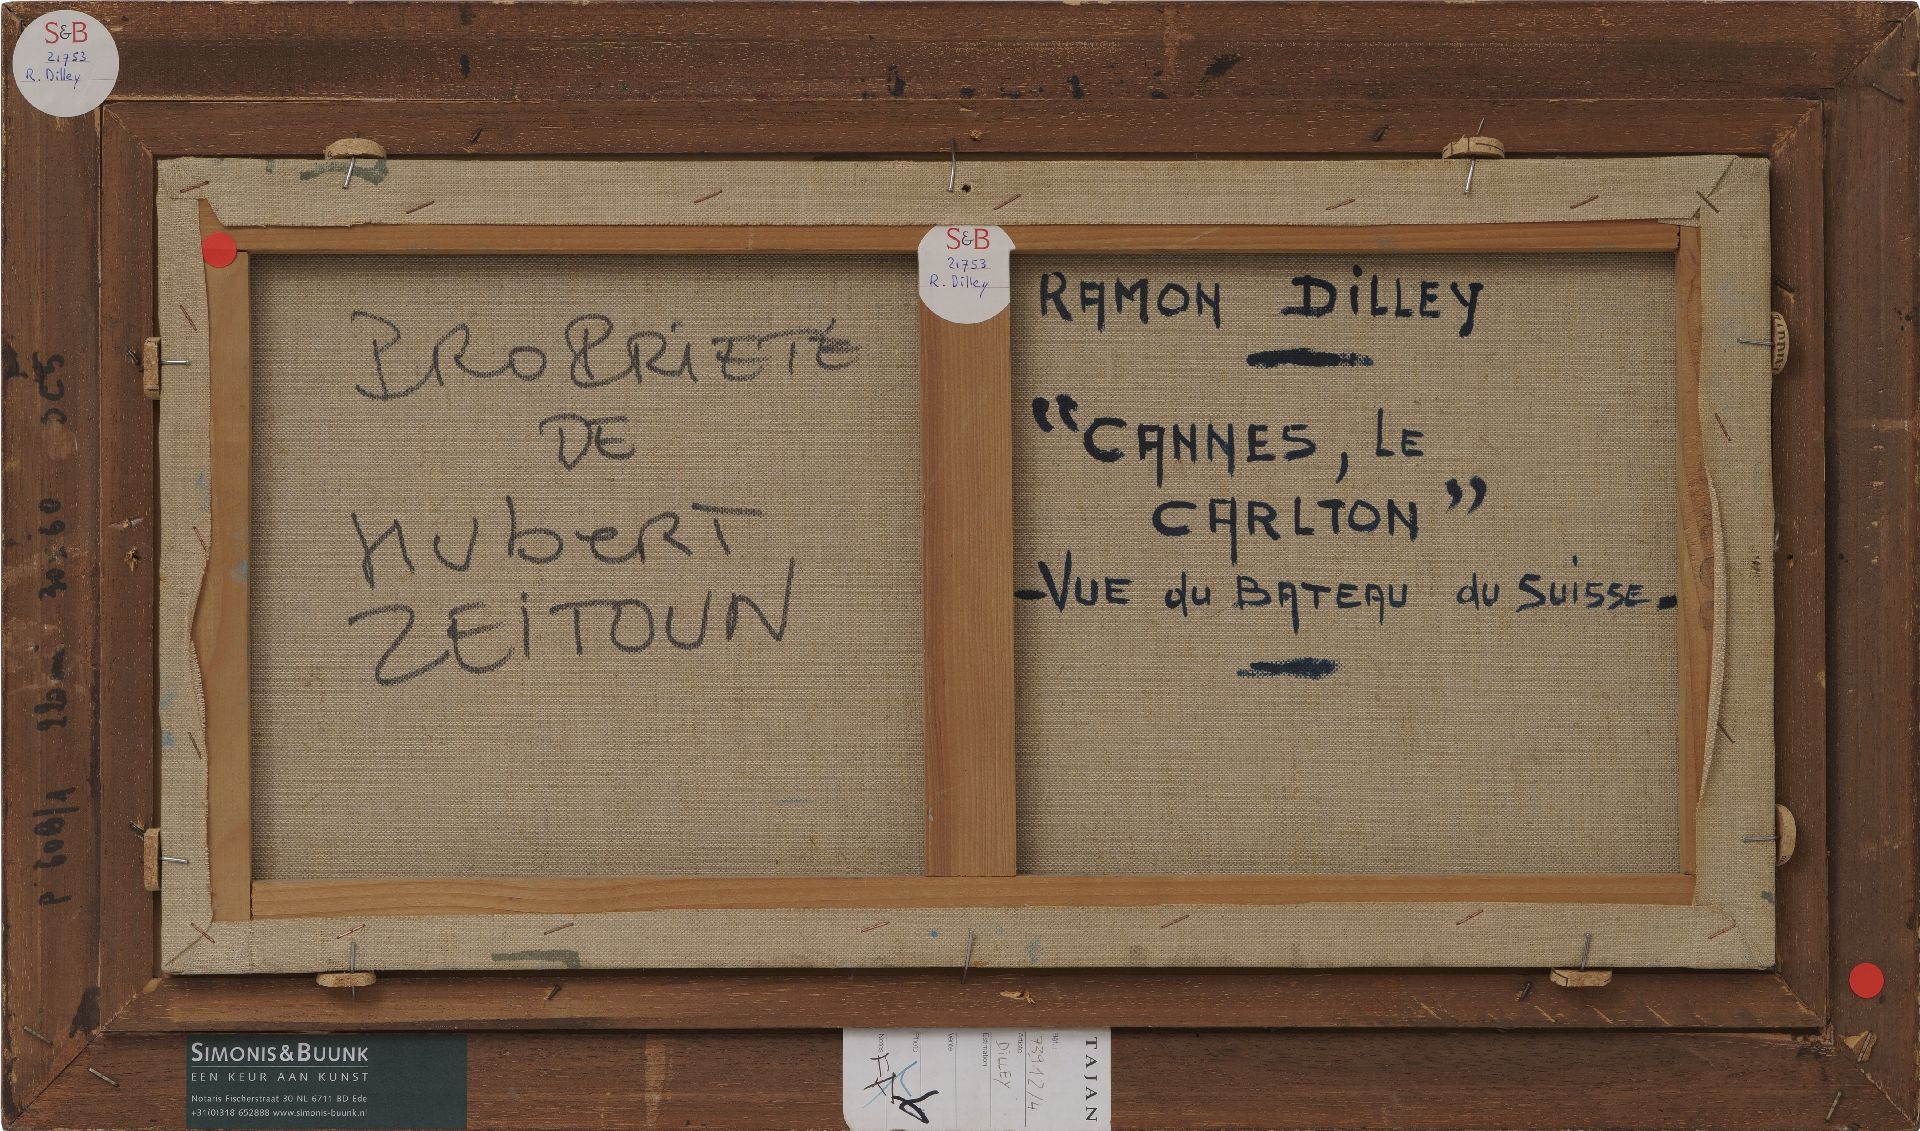 S&B
21753
R. Dilley
S&B
21753
R. Dilley
PROPRIETE
DE
HUbeRT
ZEITOUN
RAMON DiLLEY
“CANNES, LE
CARLTON”
-VUE du BATEAU du SUiSSE.
30x60
p 600/1
SIMONIS&BUUNK
EEN KEUR AAN KUNST
Notaris Fischerstraat 30 NL 6711 BD Ede
+31(0)318 652888 www.simonis-buunk.nl
TAJAN
73912/4
Artiste
DiLLEY
Estimation
Vente
Photo